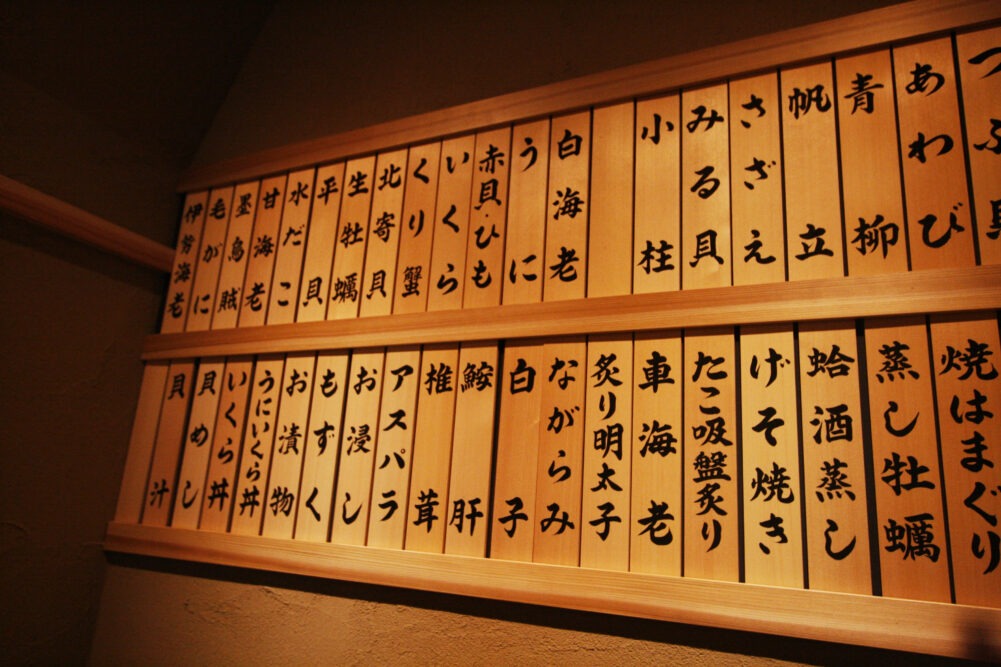 つぶ
あわび
青柳
帆立
さざえ
みる貝
小柱
白海老
うに
赤貝・ひも
いくら
くり蟹
北寄貝
生牡蠣
平貝
水だこ
甘海老
墨烏賊
毛がに
伊勢海老
焼はまぐり
蒸し牡蠣
蛤酒蒸し
げそ焼き
たこ吸盤炙り
車海老
炙り明太子
ながらみ
白子
鮟肝
椎茸
アスパラ
お浸し
もずく
お漬物
うにいくら丼
いくら丼
貝めし
貝汁